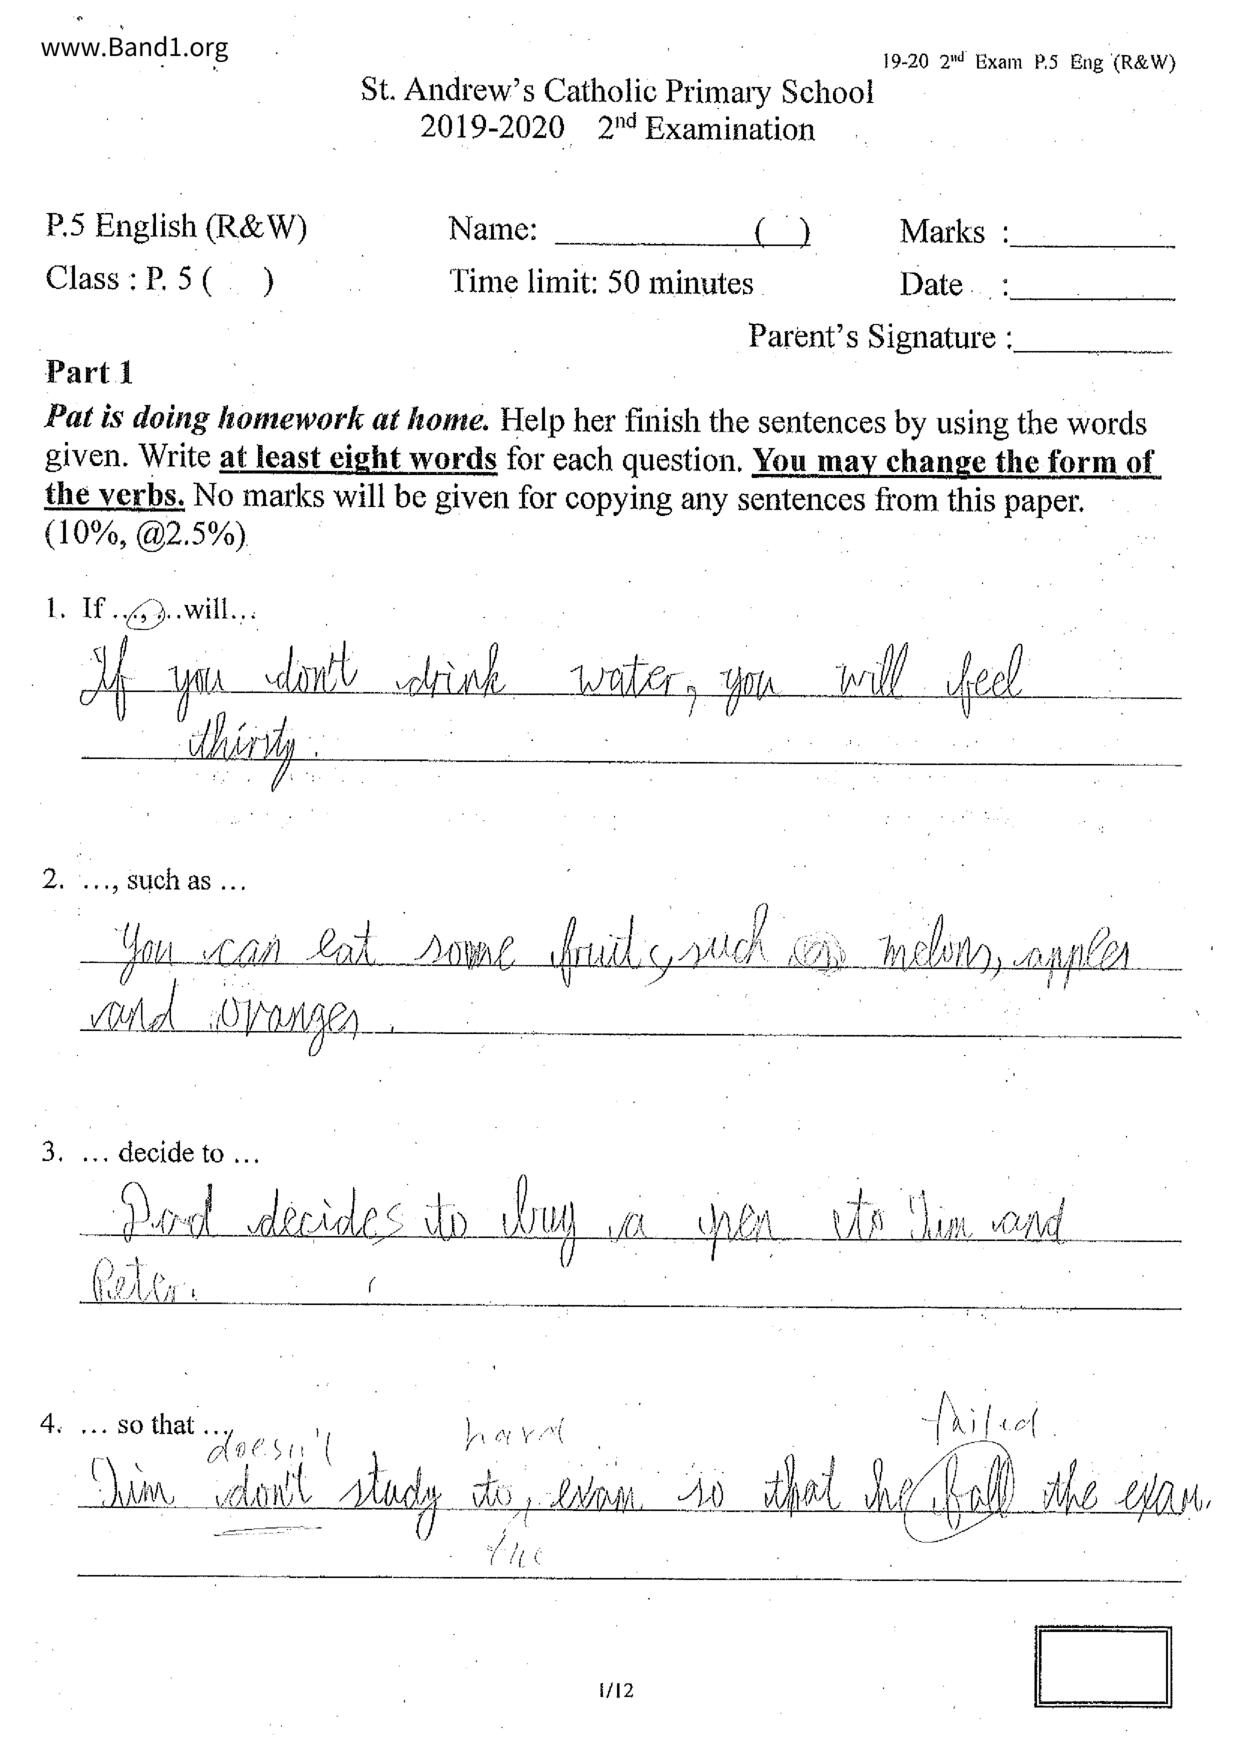 www.Band1.org
19-20 2nd Exam P.5 Eng (R&W)
St. Andrew's Catholic Primary School
2019-2020 2nd Examination
P.5 English (R&W) Name: ____________( ) Marks :__________
Class : P. 5 ( ) Time limit: 50 minutes Date :__________
Parent's Signature :__________
Part 1
Pat is doing homework at home. Help her finish the sentences by using the words
given. Write at least eight words for each question. You may change the form of
the verbs. No marks will be given for copying any sentences from this paper.
(10%, @2.5%)
1. If ...,...will...
If you don't drink water, you will feel
thirsty.
2. ..., such as ...
You can eat some fruit, such as melons, apples
and oranges.
3. ... decide to ...
Dad decides to buy a pen to Tim and
Peter.
4. ... so that ...
doesn't hard failed
Tim don't study to exam so that he fall the exam.
the
1/12